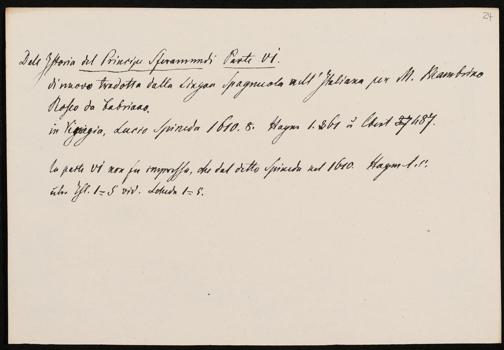 24
Dele Istoria del Principe Sferamundi Parte VI.
di nuovo tradotta dalla Lingua Spagnuola nell' Italiana per M. Mambrino
Roseo da Fabriano.
in Venezia, Lucio Spineda 1610. 8. Haym 1. 261 u Ebert
La parte VI non fu impressa, che dal detto Spineda nel 1610. Haym l. c.
über Th. 1-5 vid. 1-5.